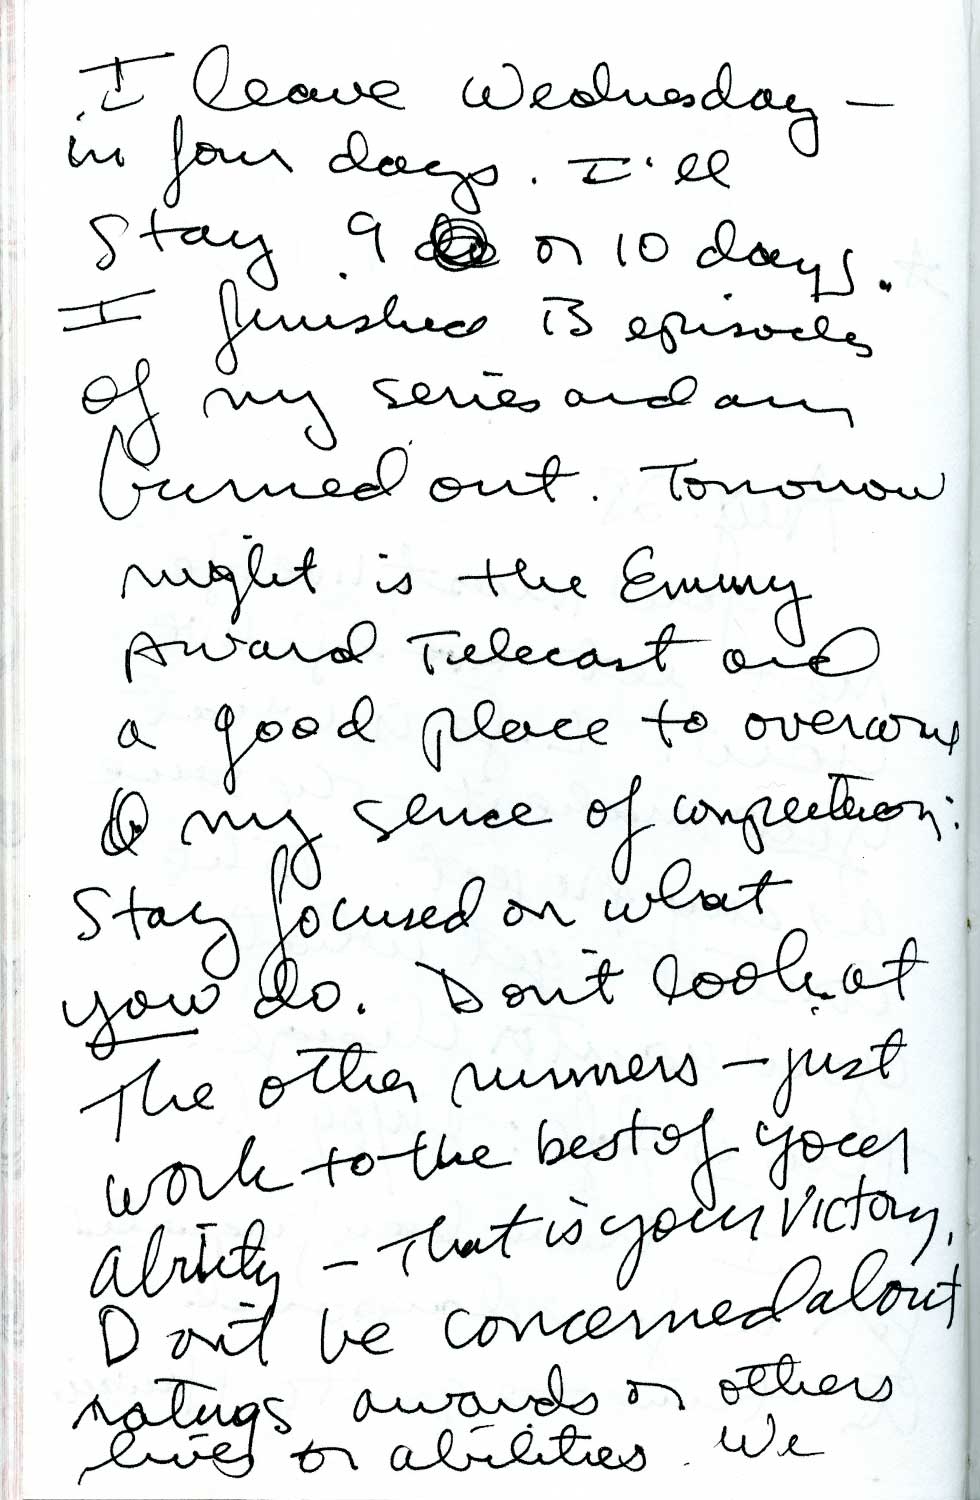 I leave Wednesday —
in four days. I'll
stay 9 or 10 days.
I finished 13 episodes
of my series and am
burned out. Tomorrow
night is the Emmy
Award Telecast and
a good place to overcome
my sense of competition:
Stay focused on what
you do. Don't look at
the other runners — just
work to the best of your
ability — that is your victory.
Don't be concerned about
ratings awards or others
lives or abilities. We